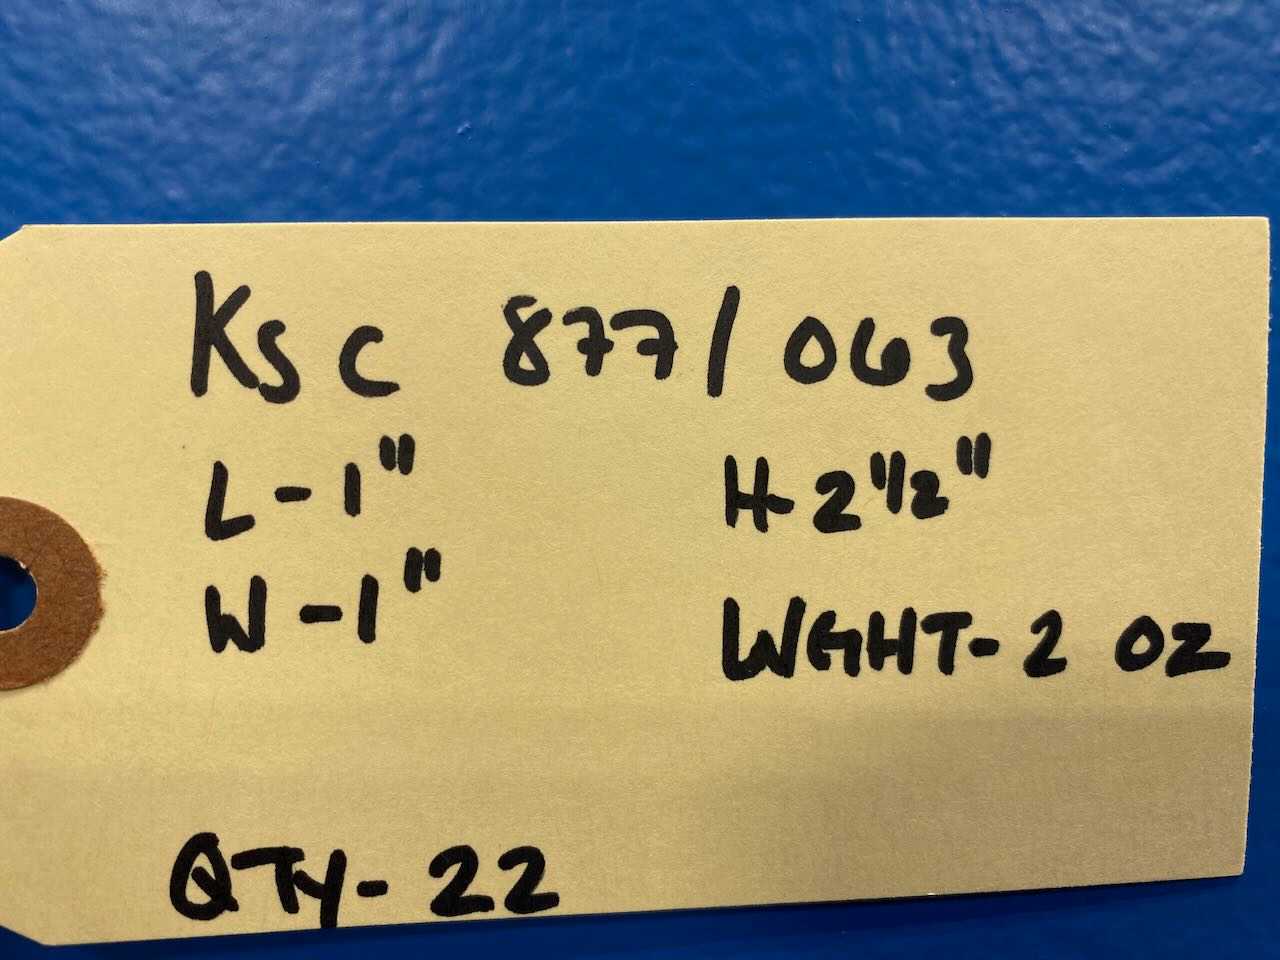 KSC 877/063
L-1" H-2 1/2"
W-1" WGHT-2 OZ
QTY-22